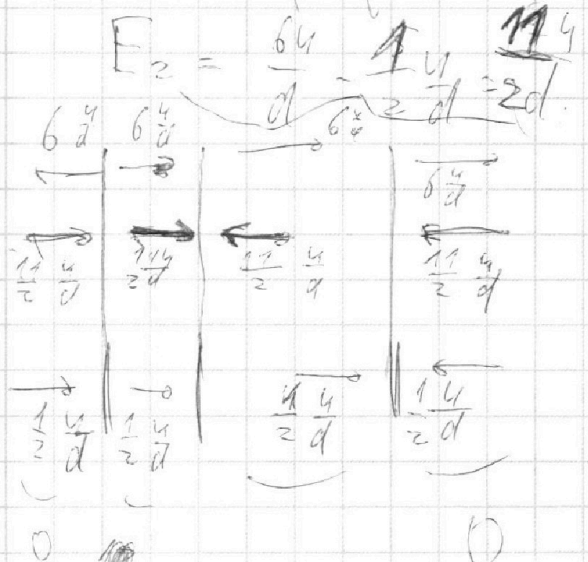 E₂ = 6u/d - 1/2 u/d = 11u/2d
6 u/d 6 u/d 6 u/d
6 u/d
11/2 u/d 11/2 u/d 11/2 u/d
1/2 u/d 1/2 u/d 1/2 u/d 1/2 u/d
0 0